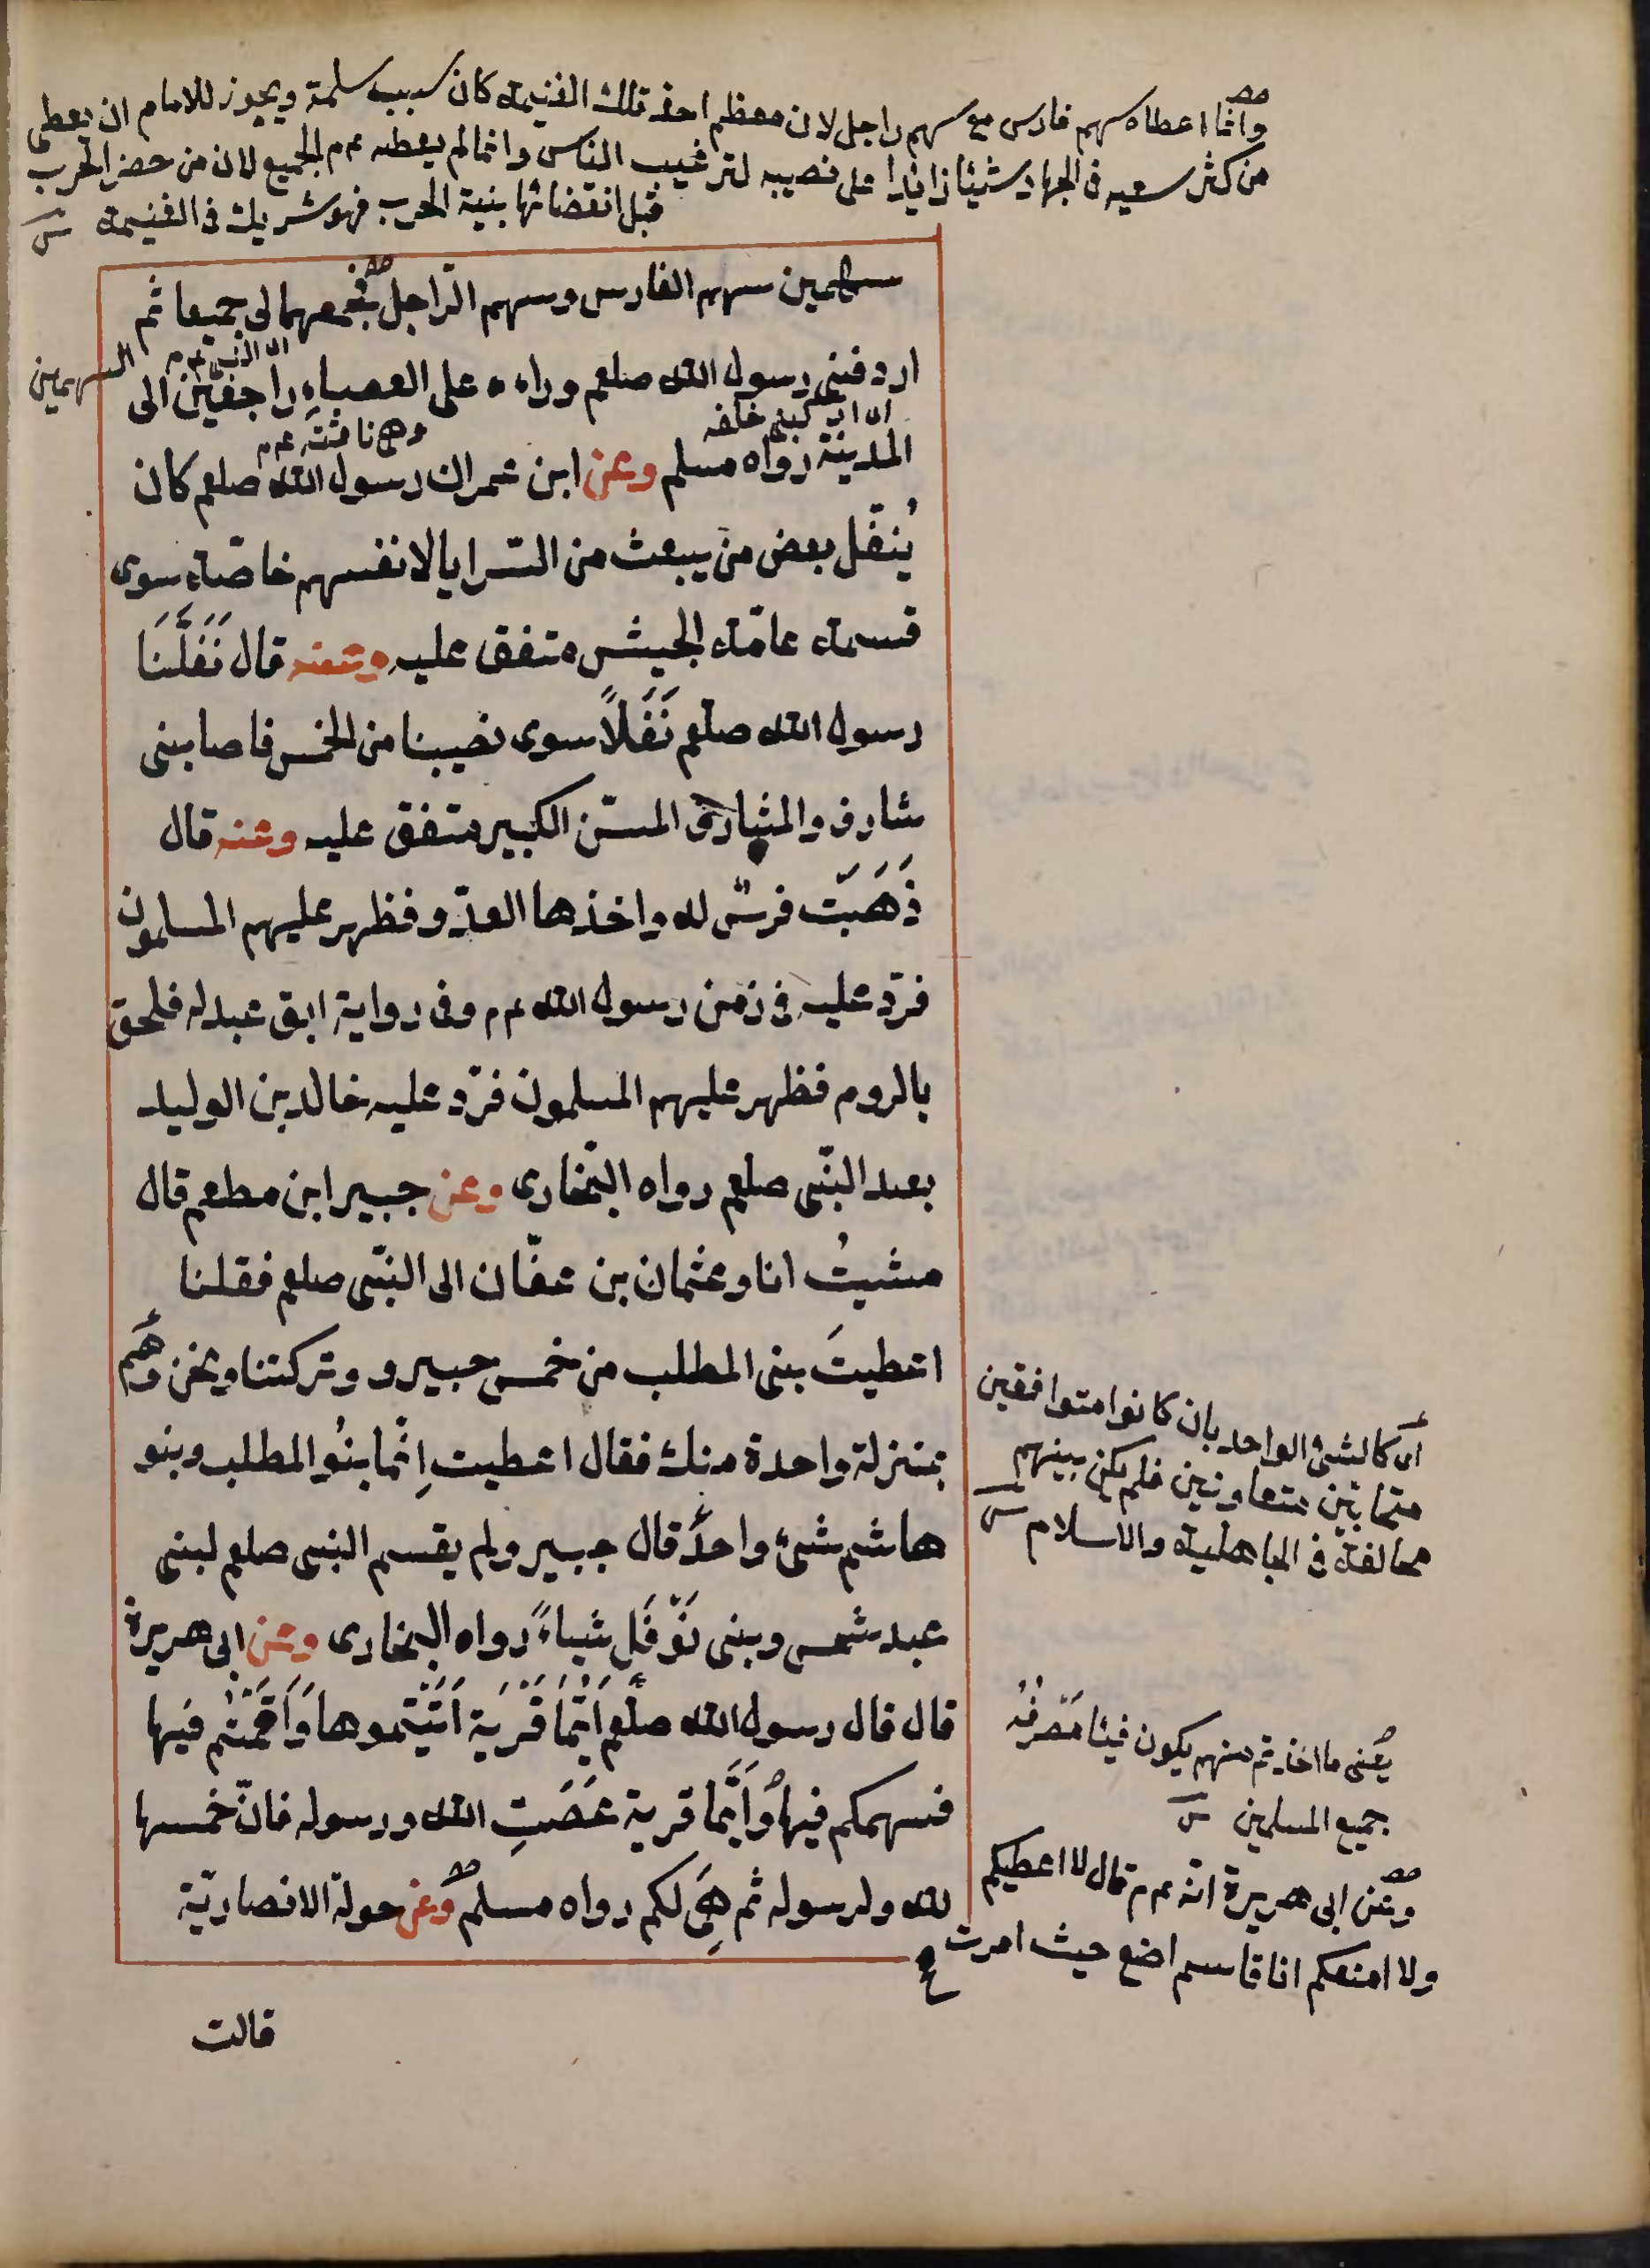 وانما اعطاه سهم فارس مع سهم راجل لان معظم اخذ تلك الغنيمة كان بسبب سلمة ويجوز للامام ان يعطى
من كثر سعيه فى الجهاد شيئا زائدا على نصيبه لترغيب الناس وانما لم يعطه عم الجميع لان من حضر الحرب
قبل انقضائها بنية الحرب فهو شريك فى الغنيمة
سهمين سهم الفارس وسهم الرّاجل فجمعهما لى جميعا ثم
السهمين
اى النبى عم
اردفنى رسول الله صلعم وراءه على العصباءِ راجعين الى
اى اركبنى خلفه
وهى ناقته عم
المدينة رواه مسلم وعن ابن عمر ان رسول الله صلعم كان
يُنفّل بعض من يبعث من السّرايا لانفسهم خاصّة سوى
قسمة عامّة الجيش متفق عليه وعنه قال نَفَّلَنَا
رسول الله صلعم نَفَلًا سوى نصيبنا من الخمس فاصابنى
شارف والشارف المسّن الكبير متفق عليه وعنه قال
ذَهَبَت فرسٌ له واخذها العدّو فظهر عليهم المسلمون
فردّ عليه فى زمن رسول الله عم وفى رواية ابق عبد له فلحق
بالروم فظهر عليهم المسلمون فردّ عليه خالد بن الوليد
بعد النّبى صلعم رواه البخارى وعن جبير ابن مطعم قال
مشيتُ انا وعثمان بن عفّان الى النّبى صلعم فقلنا
اعطيتَ بنى المطلب من خمس خيبر و وتركتنا ونحن وهُم
بمنزلة واحدة منك فقال اعطيت اِنّما بنُو المطلب وبنو
هاشم شىء واحدٌ قال جبير ولم يقسم النبى صلعم لبنى
عبد شمس وبنى نَوْفَل شياءً رواه البخارى وعن ابى هريرة
قال قال رسول الله صلّعم اَيُّمَا قَرْيَة اَتَيْتموها وَاَقَمْتُم فيها
فسهمكم فيها وَاَيُّما قرية عَصَتِ الله ورسوله فانّ خمسها
لله ولرسوله ثم هِىَ لكم رواه مسلم وعن خولة الانصاريّة
اى كالشىء الواحد بان كانوا متوافقين
متحابّين متعاونين فلم يكن بينهم
مخالفة فى الجاهلية والاسلام
يعنى ما اخذتم منهم يكون فيئا مَصْرفُه
جميع المسلمين
وعن ابى هريرة انّه عم قال لا اعطيكم
ولا امنعكم انا قاسم اضع حيث امرت
قالت